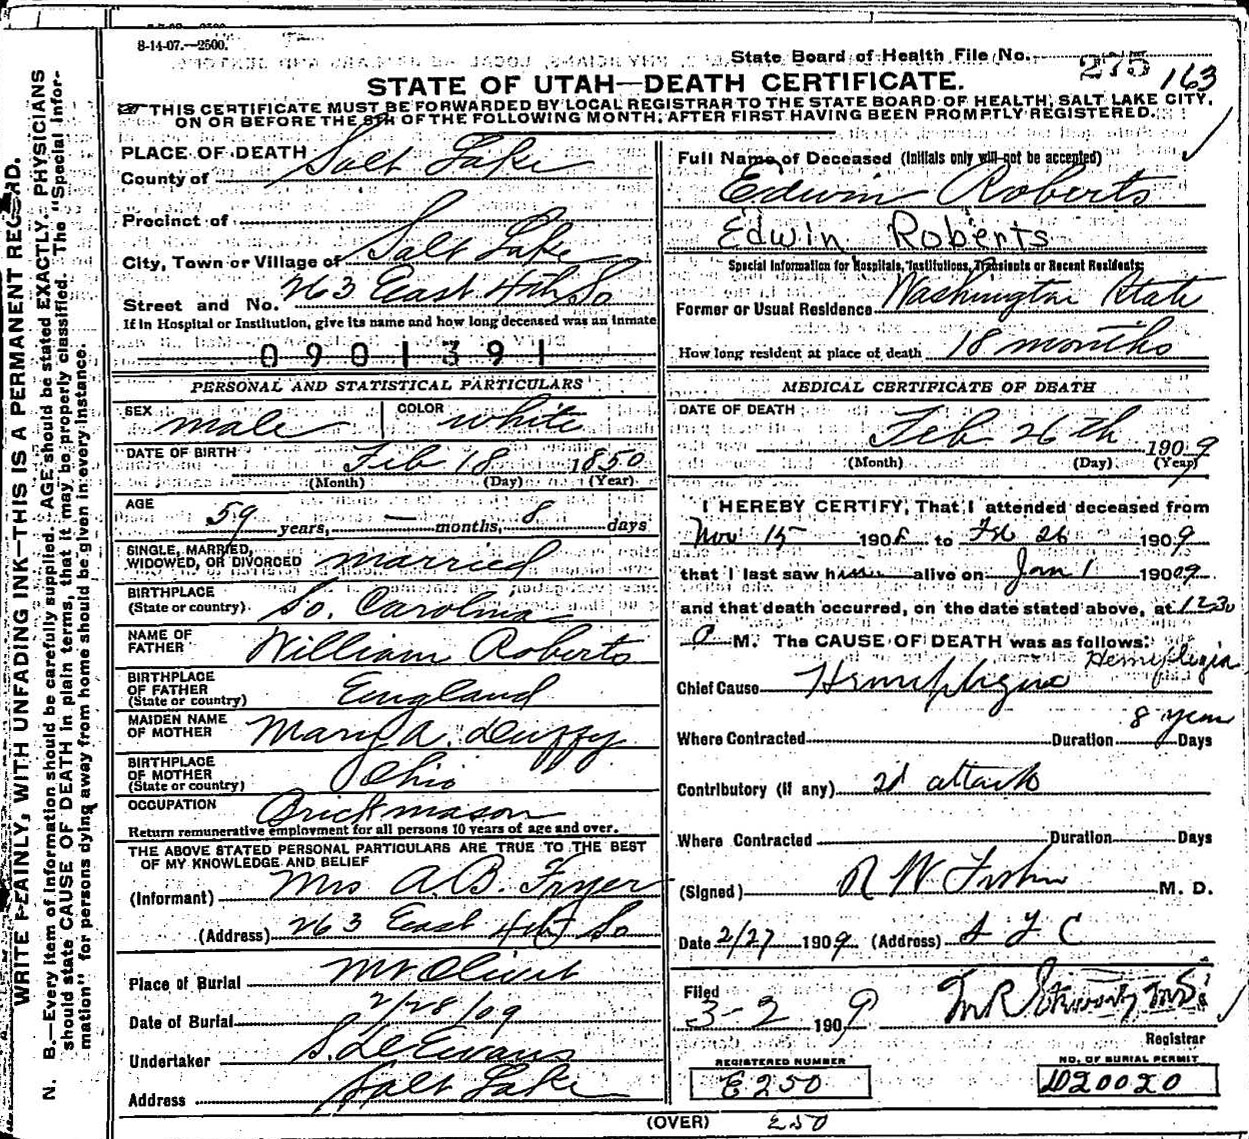 8-14-07.—2500.
State Board of Health File No. 275
163
STATE OF UTAH—DEATH CERTIFICATE.
THIS CERTIFICATE MUST BE FORWARDED BY LOCAL REGISTRAR TO THE STATE BOARD OF HEALTH, SALT LAKE CITY,
ON OR BEFORE THE 5th OF THE FOLLOWING MONTH, AFTER FIRST HAVING BEEN PROMPTLY REGISTERED.
WRITE PLAINLY, WITH UNFADING INK—THIS IS A PERMANENT RECORD.
N. B.—Every item of information should be carefully supplied. AGE should be stated EXACTLY. PHYSICIANS
should state CAUSE OF DEATH in plain terms, that it may be properly classified. The "Special Infor-
mation" for persons dying away from home should be given in every instance.
PLACE OF DEATH
County of Salt Lake
Precinct of
City, Town or Village of Salt Lake
Street and No. 263 East 4th So
If in Hospital or Institution, give its name and how long deceased was an inmate
0901391
PERSONAL AND STATISTICAL PARTICULARS
SEX male COLOR white
DATE OF BIRTH Feb 18 1850
(Month) (Day) (Year)
AGE 59 years, — months, 8 days
SINGLE, MARRIED,
WIDOWED, OR DIVORCED married
BIRTHPLACE
(State or country) So. Carolina
NAME OF
FATHER William Roberts
BIRTHPLACE
OF FATHER
(State or country) England
MAIDEN NAME
OF MOTHER Mary A. Duffy
BIRTHPLACE
OF MOTHER
(State or country) Ohio
OCCUPATION Brickmason
Return remunerative employment for all persons 10 years of age and over.
THE ABOVE STATED PERSONAL PARTICULARS ARE TRUE TO THE BEST
OF MY KNOWLEDGE AND BELIEF
(Informant) Mrs A. B. Fryer
(Address) 263 East 4th So
Place of Burial Mt Olivet
Date of Burial 2/28/09
Undertaker S. D. Evans
Address Salt Lake
Full Name of Deceased (Initials only will not be accepted)
Edwin Roberts
Edwin Roberts
Special Information for Hospitals, Institutions, Transients or Recent Residents:
Former or Usual Residence Washington State
How long resident at place of death 18 months
MEDICAL CERTIFICATE OF DEATH
DATE OF DEATH
Feb 26th 1909
(Month) (Day) (Year)
I HEREBY CERTIFY, That I attended deceased from
Nov 15 1908 to Feb 26 1909
that I last saw him alive on Jan 1 19009
and that death occurred, on the date stated above, at 1230
a M. The CAUSE OF DEATH was as follows:
Hemiplegia
Chief Cause Hemiplegia
8 years
Where Contracted Duration Days
Contributory (if any) 2d attack
Where Contracted Duration Days
(Signed) R W M. D.
Date 2/27 1909 (Address) S L C
Filed
3-2 1909 M R M.D.
Registrar
REGISTERED NUMBER
E250
NO. OF BURIAL PERMIT
D20020
(OVER) E50